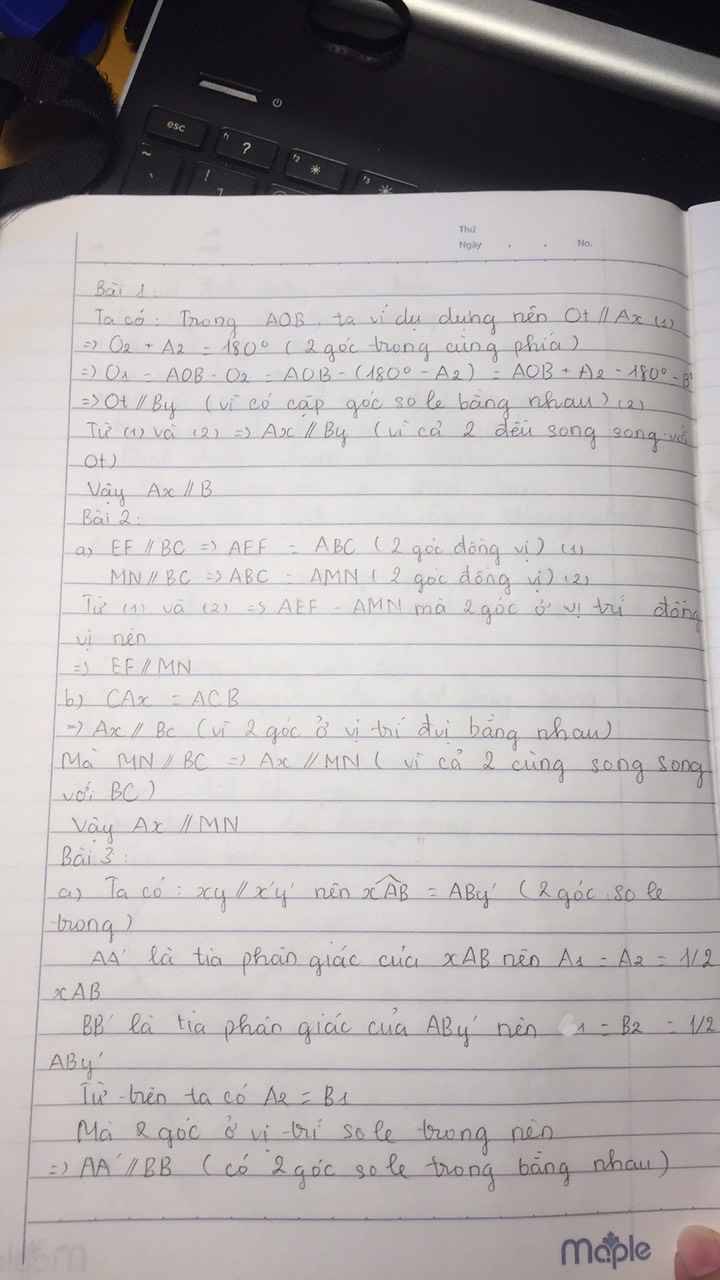 esc
f1 ?
f2
f3
~
!
Thứ
Ngày . . No.
Bài 1:
Ta có: Trong AOB, ta ví dụ dựng nên Ot // Ax (1)
=> O2 + A2 = 180° (2 góc trong cùng phía)
=> O1 = AOB - O2 = AOB - (180° - A2) = AOB + A2 - 180° = B
=> Ot // By (vì có cặp góc so le bằng nhau) (2)
Từ (1) và (2) => Ax // By (vì cả 2 đều song song với
Ot)
Vậy Ax // B
Bài 2:
a) EF // BC => AEF = ABC (2 góc đồng vị) (1)
MN // BC => ABC = AMN (2 góc đồng vị) (2)
Từ (1) và (2) => AEF = AMN mà 2 góc ở vị trí đồng
vị nên
=> EF // MN
b) CAx = ACB
=> Ax // Bc (vì 2 góc ở vị trí đvị bằng nhau)
Mà MN // BC => Ax // MN (vì cả 2 cùng song song
với BC)
Vậy Ax // MN
Bài 3:
a) Ta có: xy // x'y' nên xAB = ABy' (2 góc so le
trong)
AA' là tia phân giác của xAB nên A1 = A2 = 1/2
xAB
BB' là tia phân giác của ABy' nên 1 = B2 = 1/2
ABy'
Từ trên ta có A2 = B1
Mà 2 góc ở vị trí so le trong nên
=> AA' // BB (có 2 góc so le trong bằng nhau)
Maple